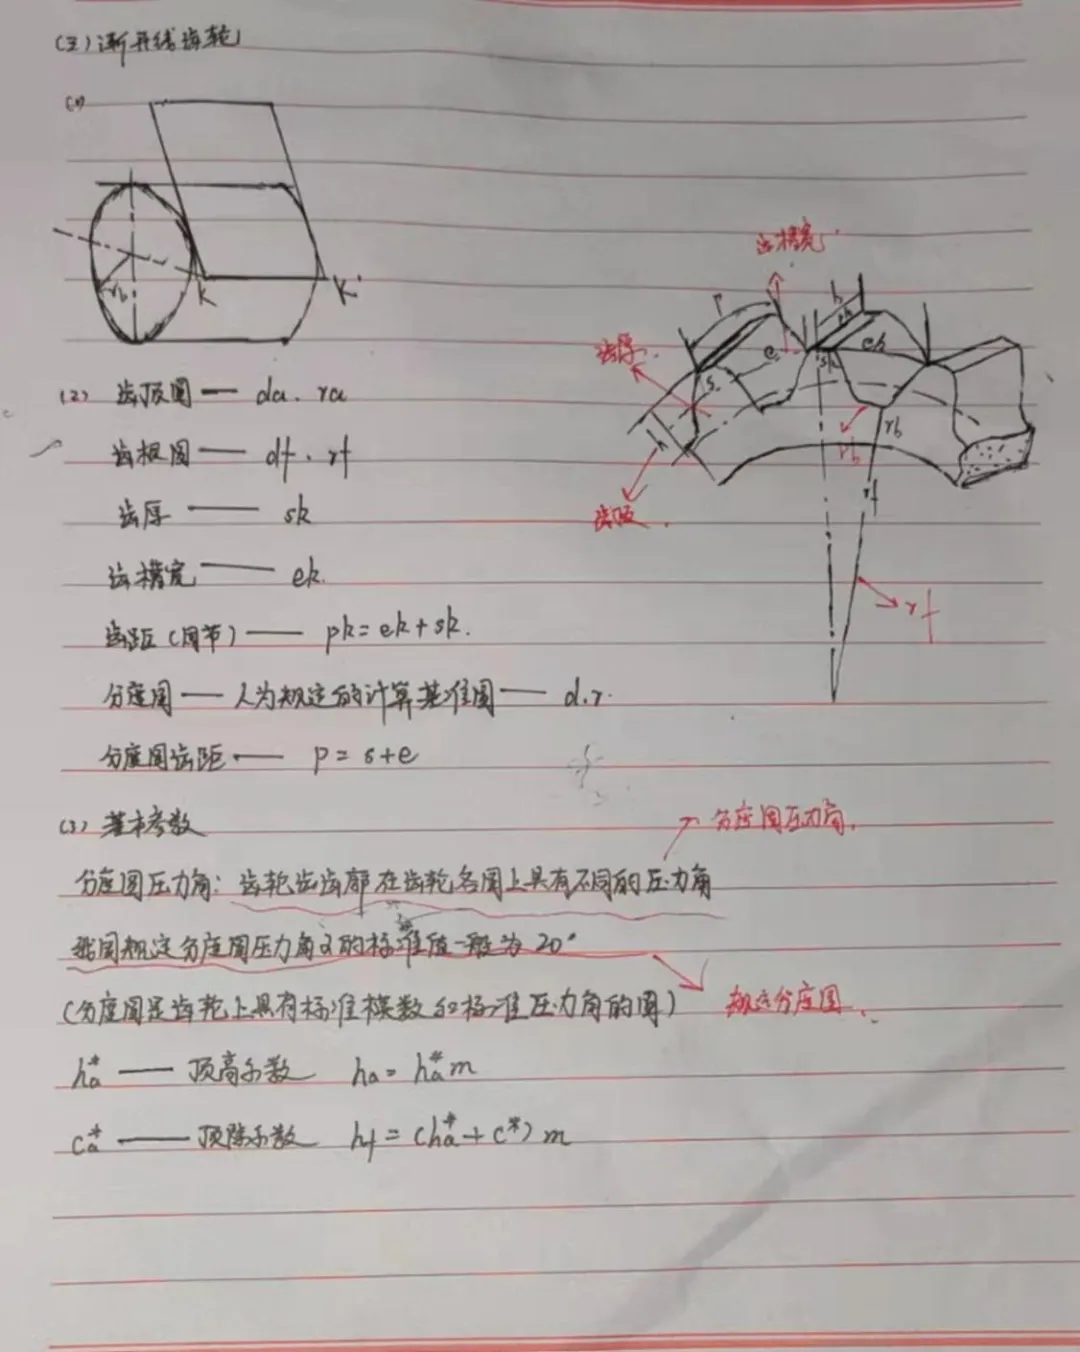 (三)渐开线齿轮
(1)
rb
K
K'
齿槽宽
b
齿厚
s
e
sk
ek
h
rb
rb
rf
齿顶
rf
(2) 齿顶圆 — da. ra
齿根圆 — df. rf
齿厚 — sk
齿槽宽 — ek.
齿距(周节) — pk=ek+sk.
分度圆 — 人为规定的计算基准圆 — d.r.
分度圆齿距 — p=s+e
(3) 基本参数
分度圆压力角.
分度圆压力角: 齿轮齿齿廓在齿轮各圆上具有不同的压力角
我国规定分度圆压力角α的标准值一般为20°
(分度圆是齿轮上具有标准模数和标准压力角的圆)
规定分度圆.
ha* — 顶高系数 ha=ha*m
ca* — 顶隙系数 hf=(ha*+c*)m